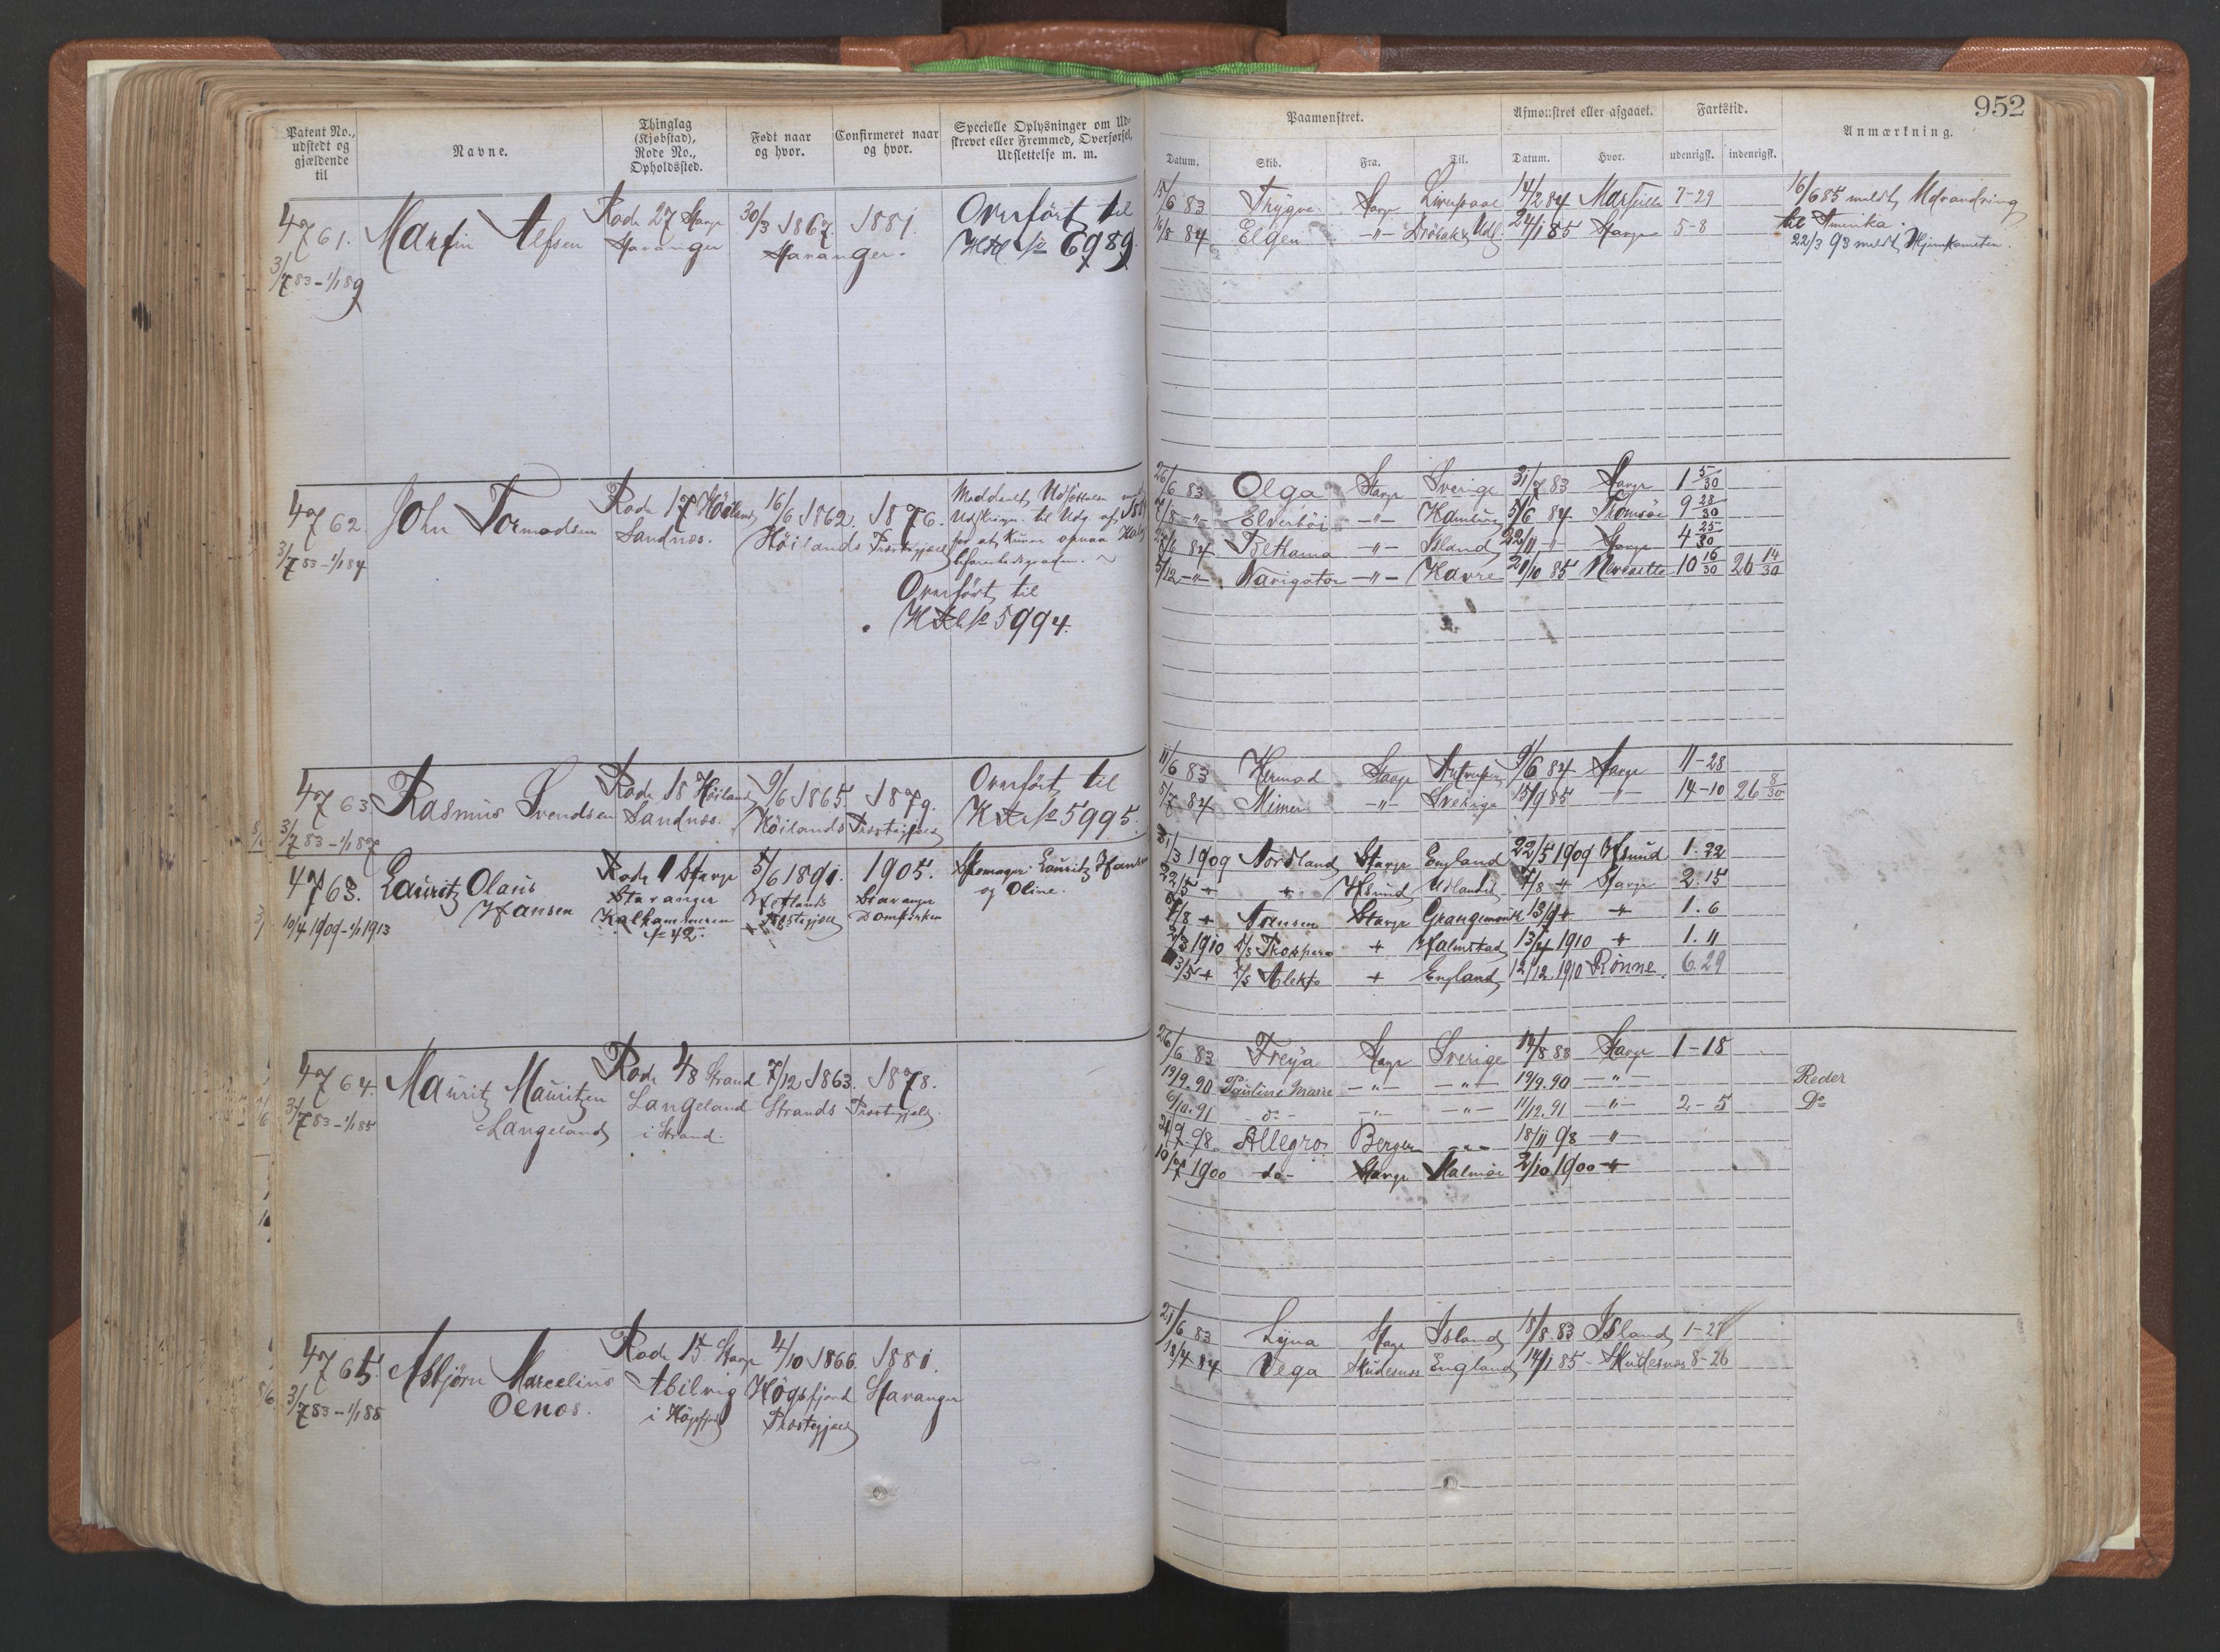 952
Patent No., udstedt og gjældende til
Navne.
Thinglag (Kjøbstad), Rode No., Opholdssted.
Født naar og hvor.
Confirmeret naar og hvor.
Specielle Oplysninger om Udskrevet eller Fremmed, Overførsel, Udslettelse m. m.
Paamønstret.
Afmønstret eller afgaaet.
Fartstid.
Anmærkning.
Datum. Skib. Fra. Til. Datum. Hvor. udenrigsk. indenrigsk.
4761. Martin Alfsen Rode 27 Stavgr 30/3 1867. 1881. Overført til
3/7 83 - 1/1 89 Stavanger Stavanger. No 6989
15/6 83 Trygve Stavgr Liverpool 14/2 84 Marseille 7-29 16/6 85 meldt Udvandring
16/8 84 Elgen -"- 24/1 85 Stavgr 5-8 til Amerika.
22/3 93 meldt Hjemkomsten.
4762. John Tormodsen Rode 17 Höiland 16/6 1862. 1876.
3/7 83 - 1/1 84 Sandnæs. Höilands Præstegjæld
Overført til
No 5994.
26/6 83 Olga Stavgr Sverige 31/7 83 Stavgr 1 5/30
7/8 -"- -"- Hamburg 5/6 84 Tromsöe 9 28/30
84 Bethania -"- Island 22/11 -"- Stavgr 4 25/30
5/12 -"- Navigator -"- Havre 21/10 85 10 16/30 26 14/30
4763. Rasmus Svendsen Rode 18 Höiland 9/6 1865 1879. Overført til
3/7 83 - 1/1 87 Sandnæs. Höilands Præstegjæld No 5995.
11/6 83 Hermod Stavgr 9/6 84 Stavgr 11-28
5/7 84 Mimer -"- Sverige 15/9 85 -"- 14-10 26 8/30
4763. Lauritz Olaus Hansen Rode 1 Stavgr 5/6 1891. 1905. Lauritz Hansen
10/4 1909 - 1/1 1913 Stavanger Stavanger og Oline.
Kalhammeren Præstegjæld Domkirken
No 42.
31/3 1909 Nordland Stavgr England 22/5 1909 Hsund 1. 22
22/5 + + Hsund Udlandet 7/8 + Stavgr 2. 15
/8 + Nansen Stavgr Grangemouth 13/9 + + 1. 6
2/3 1910 D/S Prospero + Halmstad 13/4 1910 + 1. 11
13/5 + D/S Alekto + England 12/12 1910 Rönne. 6. 29
4764. Mauritz Mauritzen Rode 48 Strand 7/12 1863. 1878.
3/7 83 - 1/1 85 Langeland Langeland Strands Præstegjæld.
i Strand.
26/6 83 Freya Stavgr Sverige 14/8 83 Stavgr 1-18
19/9. 90 Pauline Marie -"- -"- 19/9. 90 -"- Reder
6/10. 91 do- -"- -"- 11/12. 91 -"- 2-5 Do
21/9. 98 Allegro Bergen -"- 18/11 98 -"-
10/7 1900 do- Stavgr Malmöe 2/10 1900 +
4765. Asbjörn Marcelius Rode 15. Stavgr 4/10 1866. 1881.
3/7 83 - 1/1 88 Oenæs. Högsfjord Stavanger
i Högsfjord Præstegjæld
21/6 83 Lyna Stavgr Island 18/8. 83 Island 1-27
18/4 84 Vega Skudesnæs England 14/1 85- Skudesnæs 8-26